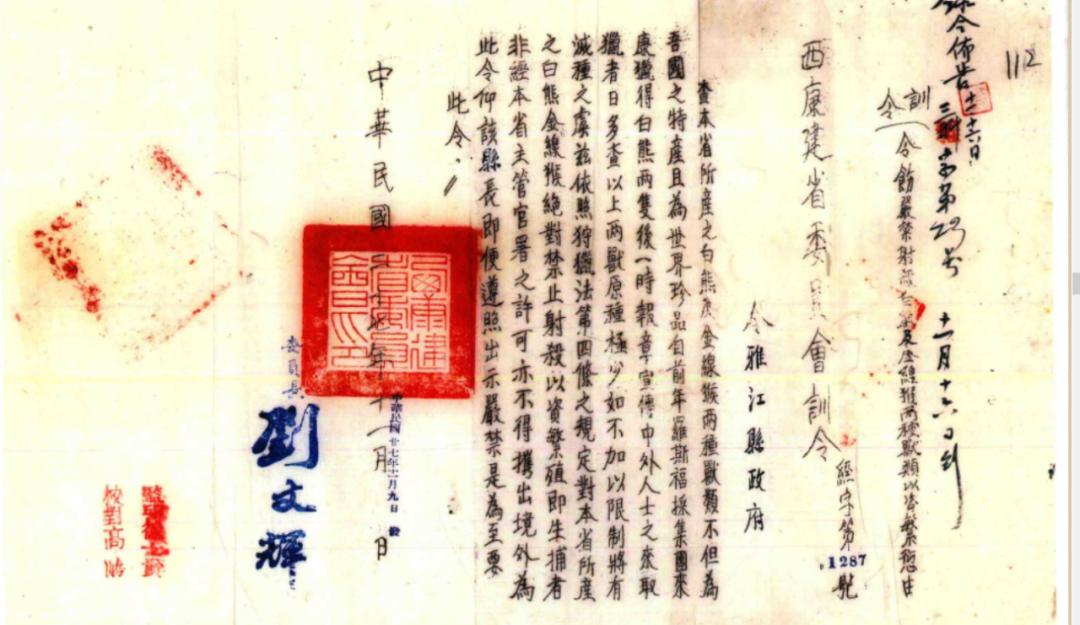 112
錄令佈告
十一月十六日
十一月十六日到
訓令
令飭嚴禁射殺白熊及金線猴兩種獸類以資繁殖由
西康建省委員會訓令
經字第
1287
號
令雅江縣政府
查本省所產之白熊及金線猴兩種獸類不但為
吾國之特產且為世界珍品自前年羅斯福採集團來
康獵得白熊兩隻後一時報章宣傳中外人士之來取
獵者日多查以上兩獸原種極少如不加以限制將有
滅種之虞茲依照狩獵法第四條之規定對本省所產
之白熊金線猴絕對禁止射殺以資繁殖即生捕者
非經本省主管官署之許可亦不得攜出境外為
此令仰該縣長即便遵照出示嚴禁是為至要
此令
中華民國二十七年十一月 日
中華民國廿七年十一月九日
委員長
劉文輝
校對高